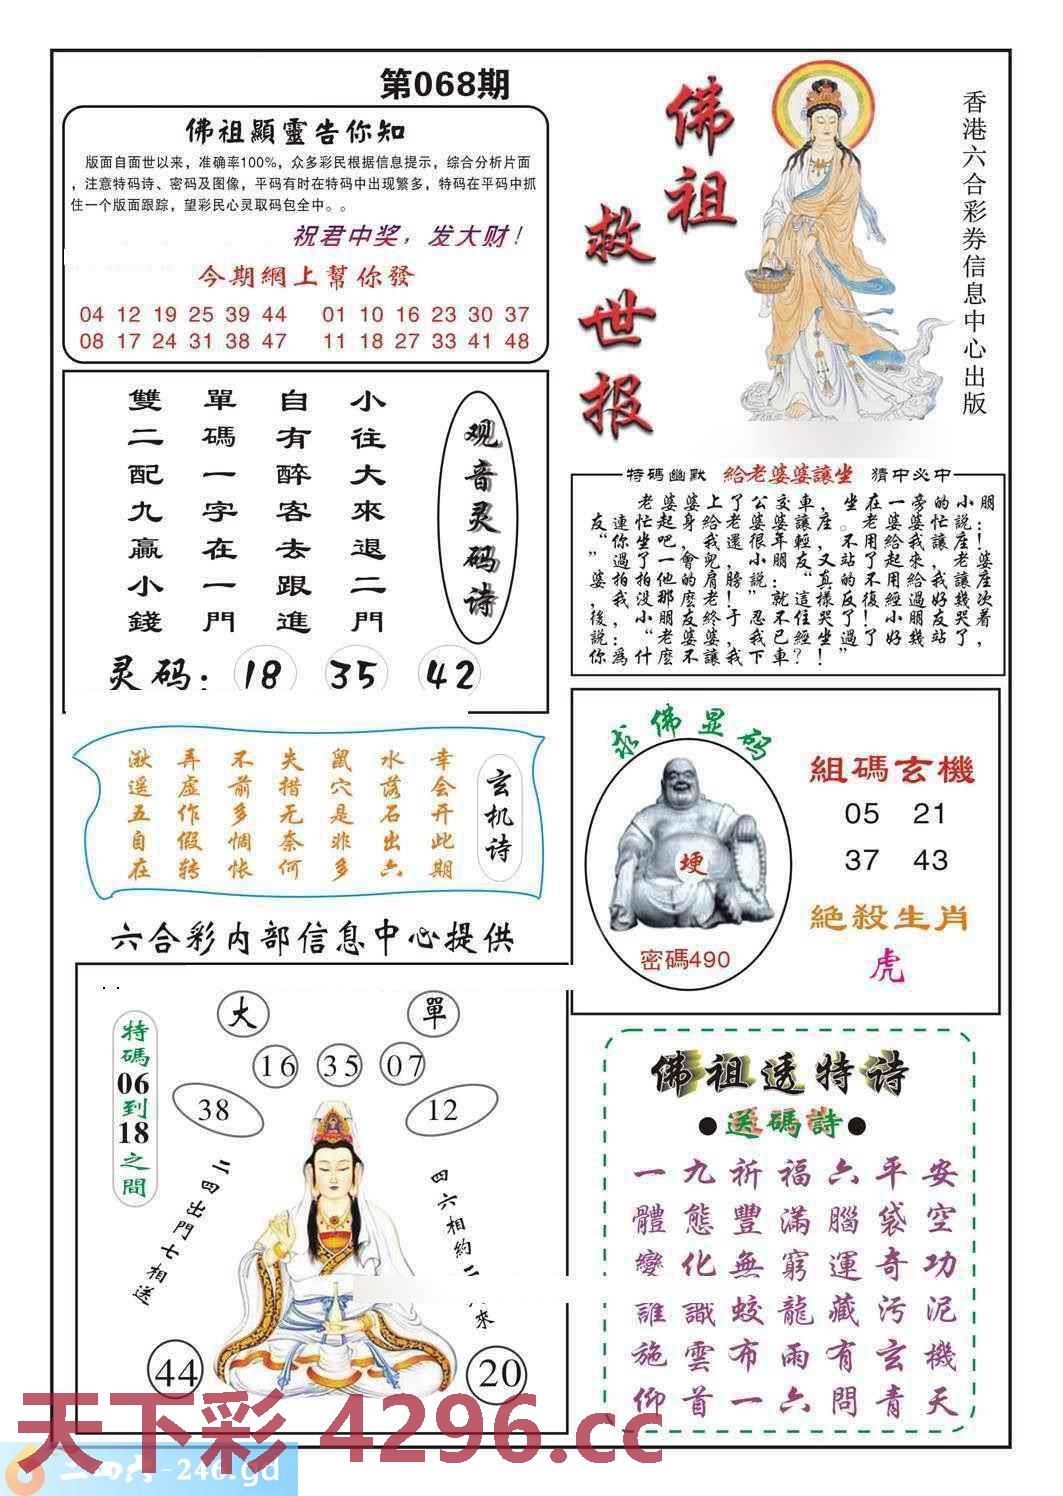 第068期
佛祖顯靈告你知
版面自面世以来，准确率100%，众多彩民根据信息提示，综合分析片面
，注意特码诗、密码及图像，平码有时在特码中出现繁多，特码在平码中抓
住一个版面跟踪，望彩民心灵取码包全中。。
祝君中奖，发大财！
今期網上幫你發
04 12 19 25 39 44 01 10 16 23 30 37
08 17 24 31 38 47 11 18 27 33 41 48
佛祖
救世报
香港六合彩券信息中心出版
观音灵码诗
小往大來退二門
自有醉客去跟進
單碼一字在一門
雙二配九贏小錢
灵码：18 35 42
特碼幽默 給老婆婆讓坐 猜中必中
老婆婆上了公交車，坐在一旁的小朋
友連忙起身給老婆婆讓座。老婆婆忙説：
“你坐吧，我還很年輕，不用給我讓座！
”過了一會兒，小朋友又站了起來，老婆
婆拍拍他的肩膀説：“真的不用給我讓座
，我没那麽老！”就這樣反復經過好幾次
後，小朋友終于忍不住哭了！小朋友哭着
説：“老婆婆，我已經坐過了好幾站了，
你爲什麽不讓我下車？！”
玄机诗
幸会开此期
水落石出六
鼠穴是非多
失措无奈何
不前多惆怅
弄虚作假转
湫遥五自在
六合彩内部信息中心提供
求佛显码
埂
密碼490
組碼玄機
05 21
37 43
絕殺生肖
虎
大 單
16 35 07
38 12
特碼06到18之間
二四出門七相送
四六相約二
來
44 20
佛祖透特诗
●送碼詩●
一九祈福六平安
體態豐滿腦袋空
變化無窮運奇功
誰識蛟龍藏污泥
施雲布雨有玄機
仰首一六問青天
天下彩 4296.cc
二四六-246.gd